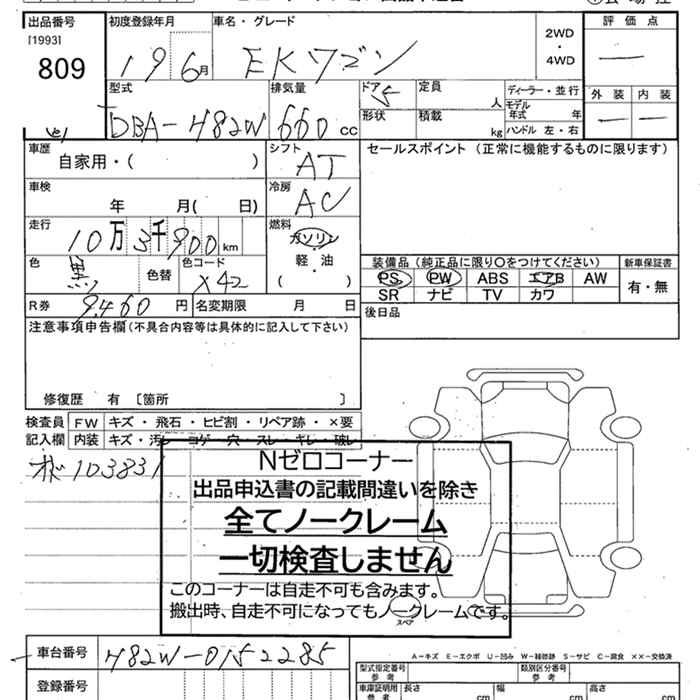 出品番号
[1993]
809
初度登録年月
19 6月
車名・グレード
EKワゴン
2WD
・
4WD
評価点
—
型式
DBA-H82W
排気量
660 cc
ドア
5
形状
定員
人
積載
kg
ディーラー・並行
モデル年式 年
ハンドル 左・右
外装
—
内装
—
車歴
自家用・( )
シフト
AT
セールスポイント (正常に機能するものに限ります)
車検
年 月( 日)
冷房
AC
走行
10万3千900km
燃料
ガソリン
軽・油
( )
色
黒
色替
色コード
X42
装備品(純正品に限り○をつけてください)
PS PW ABS エアB AW
SR ナビ TV カワ
新車保証書
有・無
R券
9.460円
名変期限 月 日
後日品
注意事項申告欄(不具合内容等は具体的に記入して下さい)
修復歴 有 〔箇所 〕
検査員
記入欄
FW キズ・飛石・ヒビ割・リペア跡・×要
内装 キズ・汚レ・コゲ・穴・スレ・キレ・破レ
103831
Nゼロコーナー
出品申込書の記載間違いを除き
全てノークレーム
一切検査しません
このコーナーは自走不可も含みます。
搬出時、自走不可になってもノークレームです。
スペア
A-キズ E-エクボ U-凹み W-補修跡 S-サビ C-腐食 ××-交換済
車台番号
H82W-0152285
登録番号
型式指定番号
参考
類別区分番号
参考
車庫証明用
参考
長さ
cm
幅
cm
高さ
cm